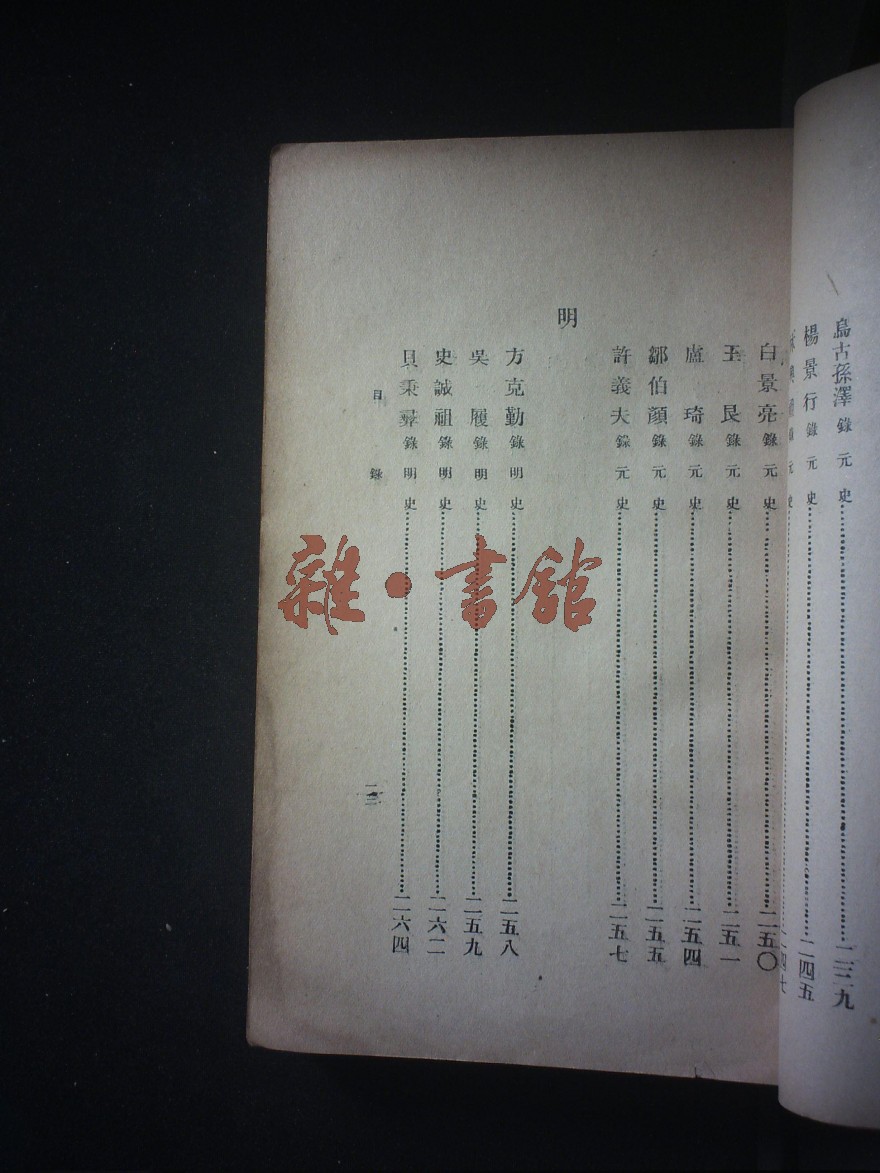 烏古孫澤錄元史二三九
楊景行錄元史二四五
林興祖錄元史二四七
白景亮錄元史二五〇
王艮錄元史二五一
盧琦錄元史二五四
鄒伯顏錄元史二五五
許義夫錄元史二五七
明
方克勤錄明史二五八
吳履錄明史二五九
史誠祖錄明史二六二
貝秉彝錄明史二六四
目錄
雜·書館